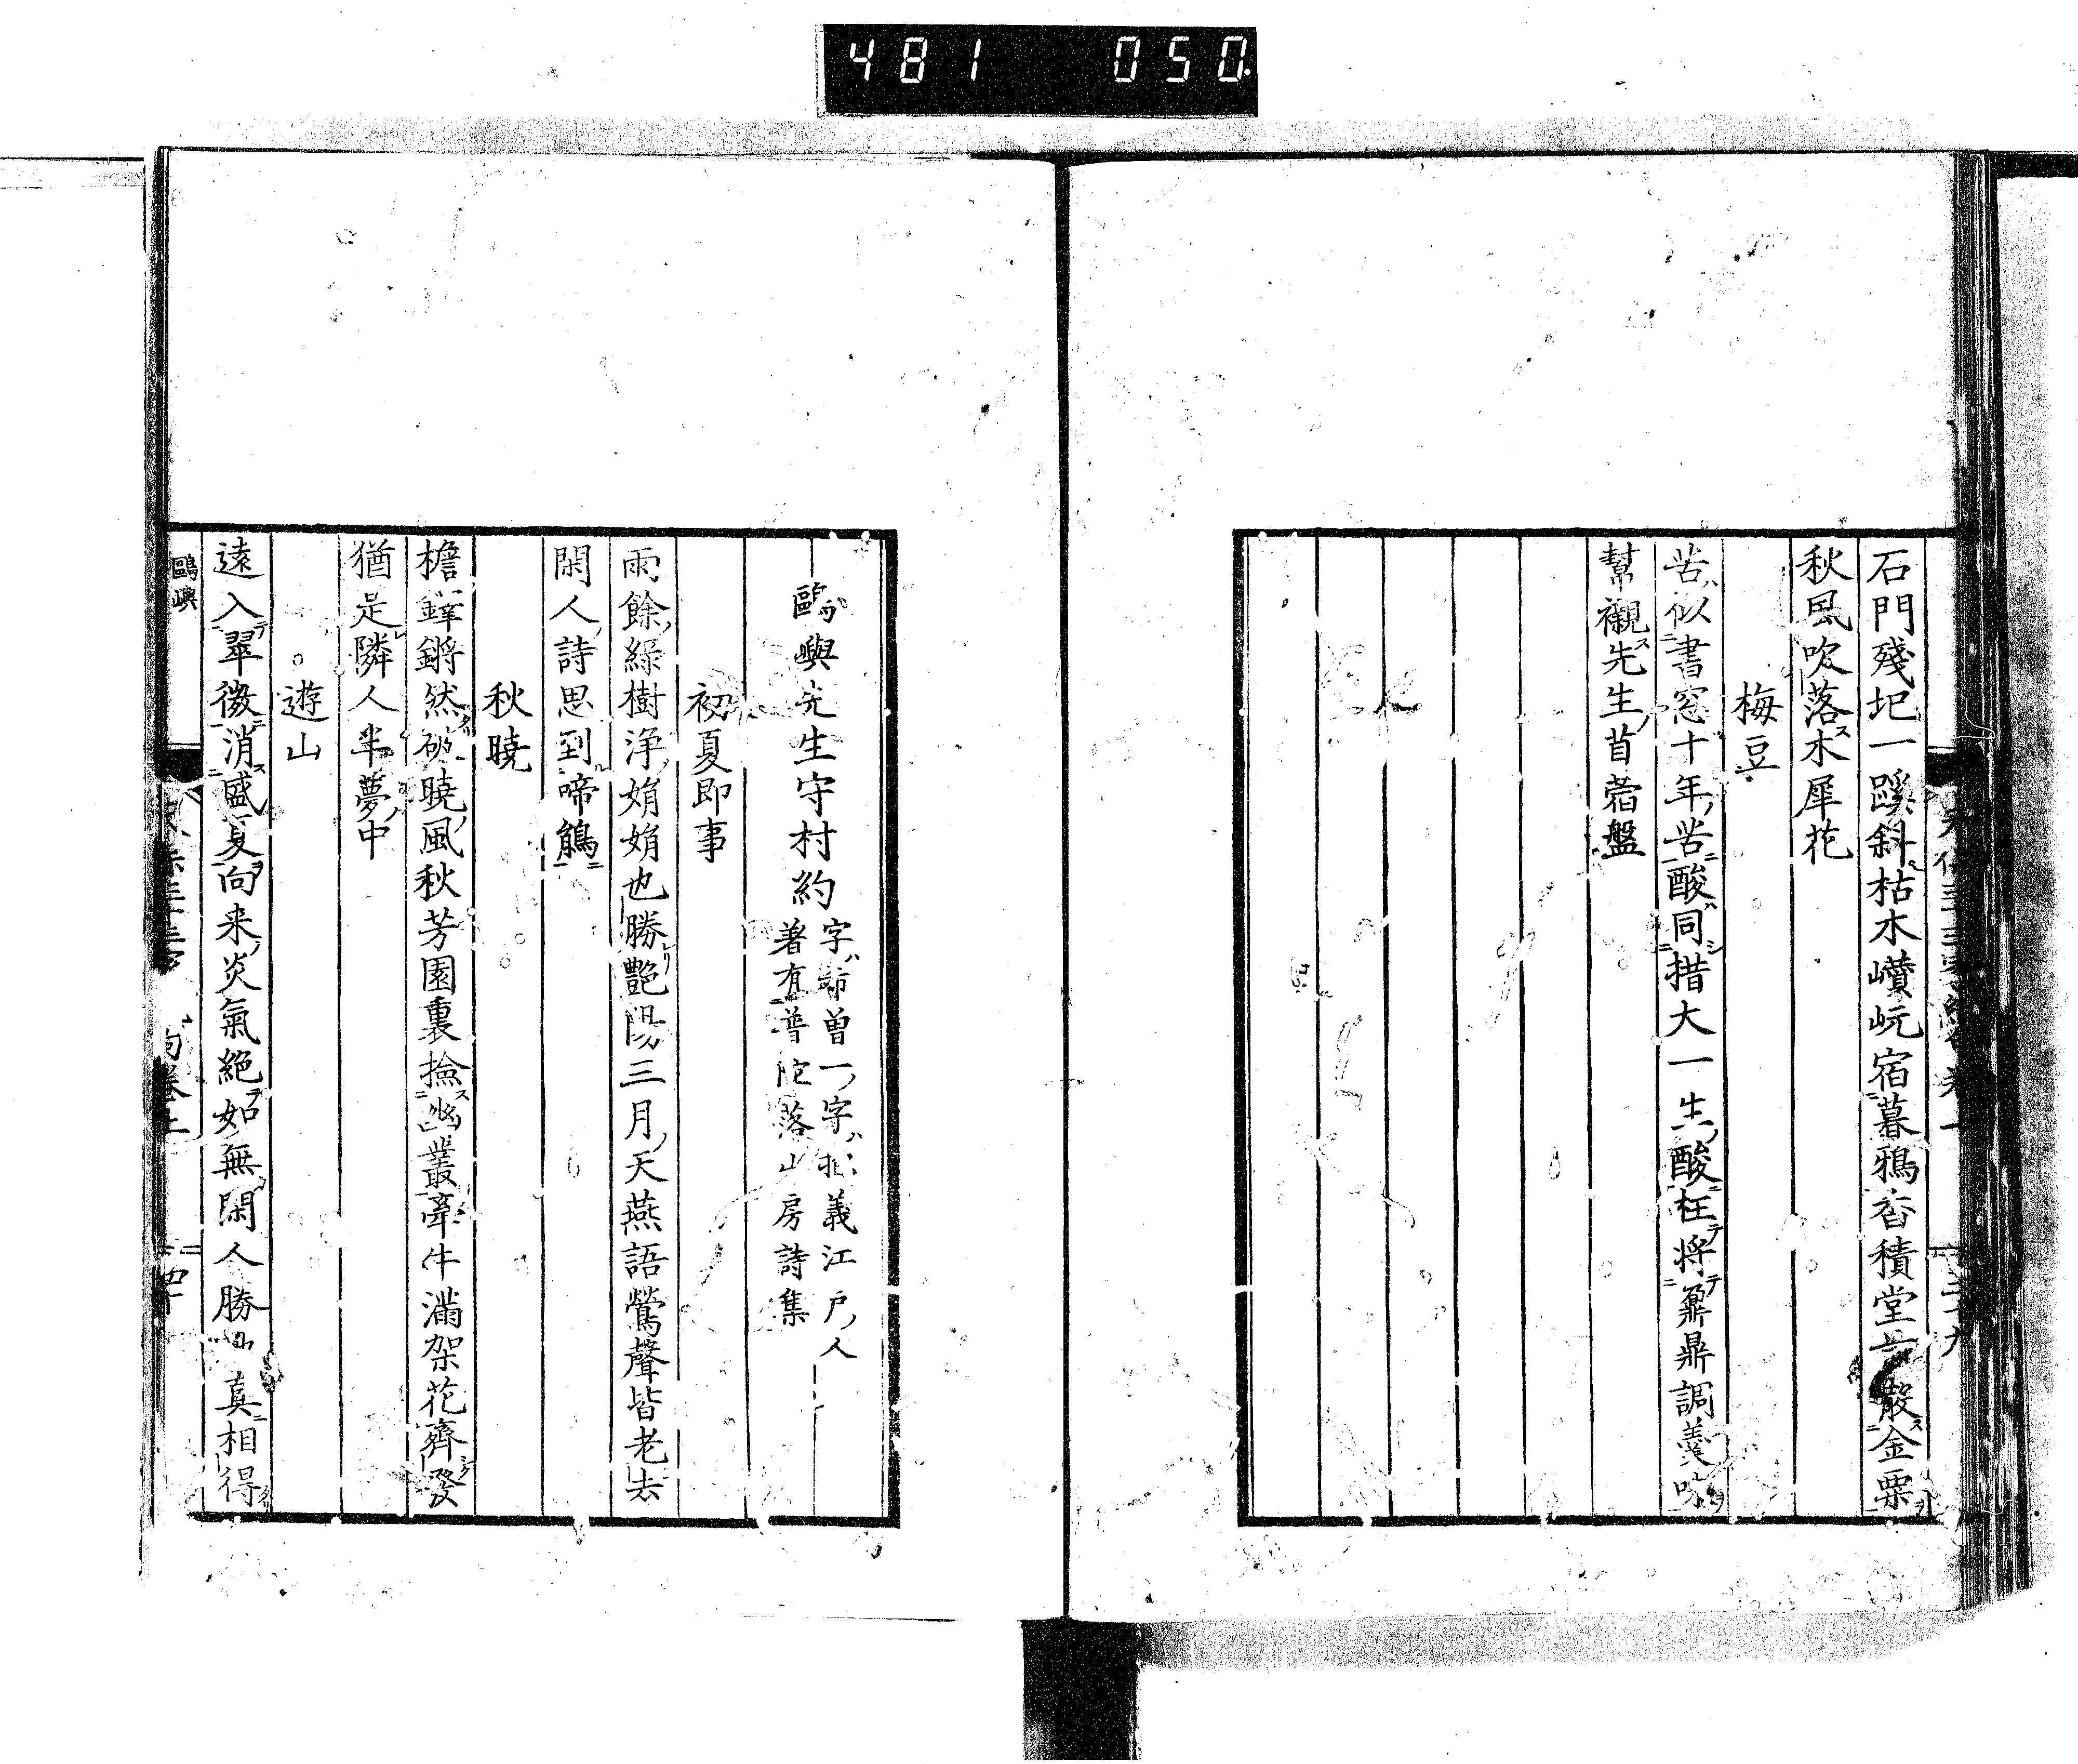 481 050
石門殘圯一蹊斜枯木巑岏宿暮鴉香積堂散金粟
秋風吹落木犀花
梅豆
苦似書窓十年苦酸同措大一生酸枉将鼐鼎調羹味
幇襯先生苜蓿盤
鷗嶼先生守村約
字曽一字義江戸人
著有普陀落山房詩集
初夏即事
雨餘綠樹浄娟娟也勝艶陽三月天燕語鶯聲皆老去
閑人詩思到啼鵑
秋曉
檐鐸鏘然破曉風秋芳園裏撿幽叢牽牛滿架花齊發
猶是隣人半夢中
遊山
遠入翠微消盛夏向来炎氣絕如無閑人勝真相得
鷗嶼